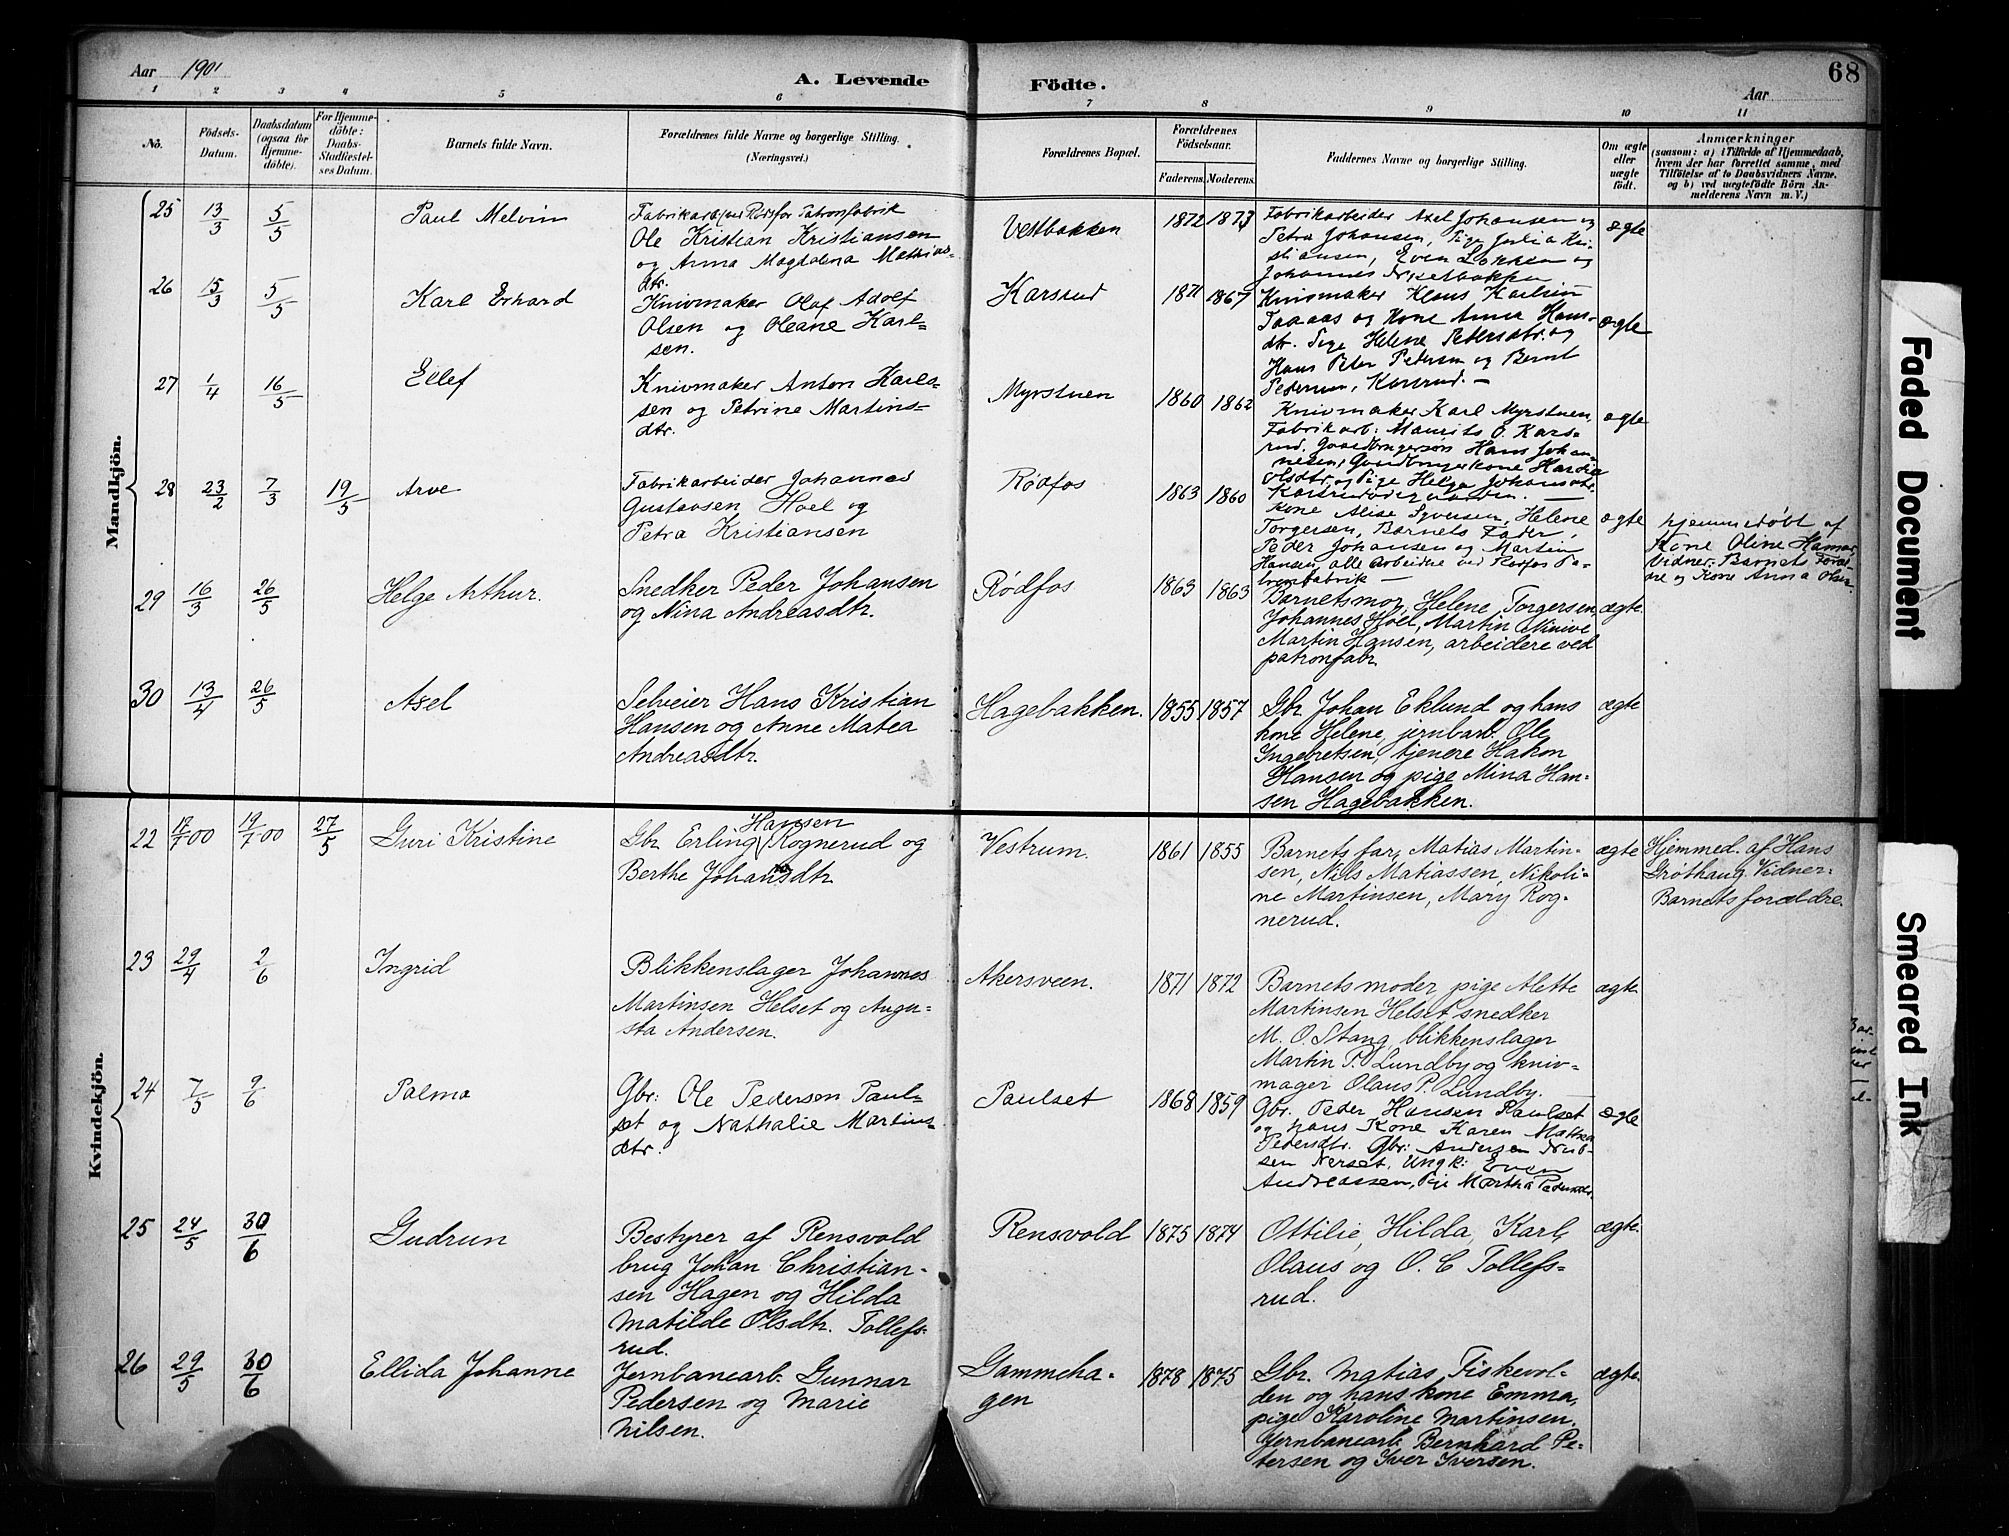 Aar 1901
A. Levende
Födte.
68
Aar
1 2 3 4 5 6 7 8 9 10 11
No.
Födsels-
Datum.
Daabsdatum
(ogsaa for
Hjemme-
döbte).
For Hjemme-
döbte:
Daabs-
Stadfæstel-
ses Datum.
Barnets fulde Navn.
Forældrenes fulde Navne og borgerlige Stilling.
(Næringsvei.)
Forældrenes Bopæl.
Forældrenes
Födselsaar.
Faderens. Moderens.
Faddernes Navne og borgerlige Stilling.
Om ægte
eller
uægte
födt.
Anmærkninger
(saasom: a) i Tilfælde af Hjemmedaab,
hvem der har forrettet samme, med
Tilföielse af to Daabsvidners Navne,
og b) ved uægtefödte Börn An-
melderens Navn m. V.)
Mandkjön.
25 13/3 5/5 Paul Melvin
Fabrikarb. ved Rødfos Patronfabrik
Ole Kristian Kristiansen
og Anna Magdalena Mathias-
dtr.
Vestbakken 1872 1873
Fabrikarbeider Axel Johansen og
Petra Johansen, Pige Julia Kri-
stiansen, Even Løkken og
Johannes
ægte
26 15/3 5/5 Karl Erhard
Knivmaker Olaf Adolf
Olsen og Oleane Karl-
sen.
Karsrud 1871 1867
Knivmaker Klaus Karlsen
og Kone Anna Hans-
dtr. Pige Helene Pedersdtr. og
Hans Peter Pedersen og Bernt
Pedersen, Karsrud. —
ægte
27 1/4 16/5 Ellef
Knivmaker Anton Karl-
sen og Petrine Martins-
dtr.
Myrstuen 1860 1862
Knivmaker Karl Myrstuen,
Fabrikarb: Maurits O. Kars-
rud, Gaardbrugersøn Hans Johan-
nesen, Gaardbrugerkone
Olsdtr. og Pige Helga Johansdtr.
ægte
28 23/2 7/3 19/5 Arve
Fabrikarbeider Johannes
Gustavsen Hoel og
Petra Kristiansen
Rødfos 1863 1860
Kone Alise Syversen, Helene
Torgersen, Barnets Fader,
Peder Johansen og Martin
Hansen, alle Arbeidre ved Rødfos Pa-
tronfabrik —
ægte
hjemmedøbt af
Kone Oline Hamar,
Vidner: Barnets Foræl-
dre og Kone Anna Olsen.
29 16/3 26/5 Helge Arthur.
Snedker Peder Johansen
og Nina Andreasdtr.
Rødfos 1863 1863
Barnets mor, Helene Torgersen,
Johannes Hoel, Martin Ninive
Martin Hansen, arbeidere ved
patronfabr.
ægte.
30 13/4 26/5 Axel
Selveier Hans Kristian
Hansen og Anne Matea
Andreasdtr.
Hagebakken. 1855 1857
Gbr Johan Eklund og hans
kone Helene, jernbarb. Ole
Ingebretsen, tjenere Hakon
Hansen og pige Mina Han-
sen Hagebakken.
ægte
Kvindekjön.
22 17/7 00 19/7 00 27/5 Guri Kristine
Gbr Erling Hansen Rognerud og
Berthe Johansdtr
Vestrum. 1861 1855
Barnets far, Matias Martin-
sen, Nils Matiassen, Nikoli-
ne Martinsen, Mary Rog-
nerud.
ægte
Hjemmed. af Hans
Grøthaug. Vidner:
Barnets forældre.
23 29/4 2/6 Ingrid
Blikkenslager Johannes
Martinsen Helset og Augu-
sta Andersen.
Akersveen. 1871 1872
Barnets moder, pige Alette
Martinsen Helset, snedker
M. O. Stang, blikkenslager
Martin P. Lundby og kniv-
mager Olaus P. Lundby. —
ægte.
24 7/5 9/6 Palma
Gbr: Ole Pedersen Paul-
set og Nathalie Martins-
dtr.
Paulset 1868 1859
Gbr. Peder Hansen Paulset
og hans Kone Karen Mathea
Pedersdtr. Gbr: Andersen
sen Nerset, Ungk: Even
Andreassen, Pige Martha Pedersdtr.
ægte
25 24/5 30/6 Gudrun
Bestyrer af Rensvold
brug Johan Christian-
sen Hagen og Hilda
Matilde Olsdtr. Tollefs-
rud.
Rensvold 1875 1874
Ottilie, Hilda, Karl,
Olaus og O. C Tollefs-
rud.
ægte.
26 29/5 30/6 Ellida Johanne
Jernbanearb. Gunnar
Pedersen og Marie
Nilsen.
Gammeha-
gen
1878 1875
Gbr. Matias Fiskevol-
den og hans kone Emma,
pige Karoline Martinsen.
Jernbanearb. Bernhard Pe-
tersen og Iver Iversen.
ægte.
Faded Document
Smeared Ink